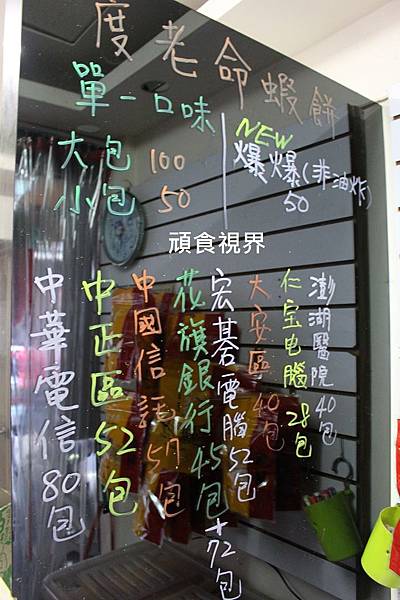 度老命蝦餅
單一口味
大包 100
小包 50
NEW
爆爆(非油炸)
50
頑食視界
澎湖醫院40包
仁宝电腦28包
大安區40包
宏碁電腦52包+72包
花旗銀行45包
中國信託57包
中正區52包
中華電信80包